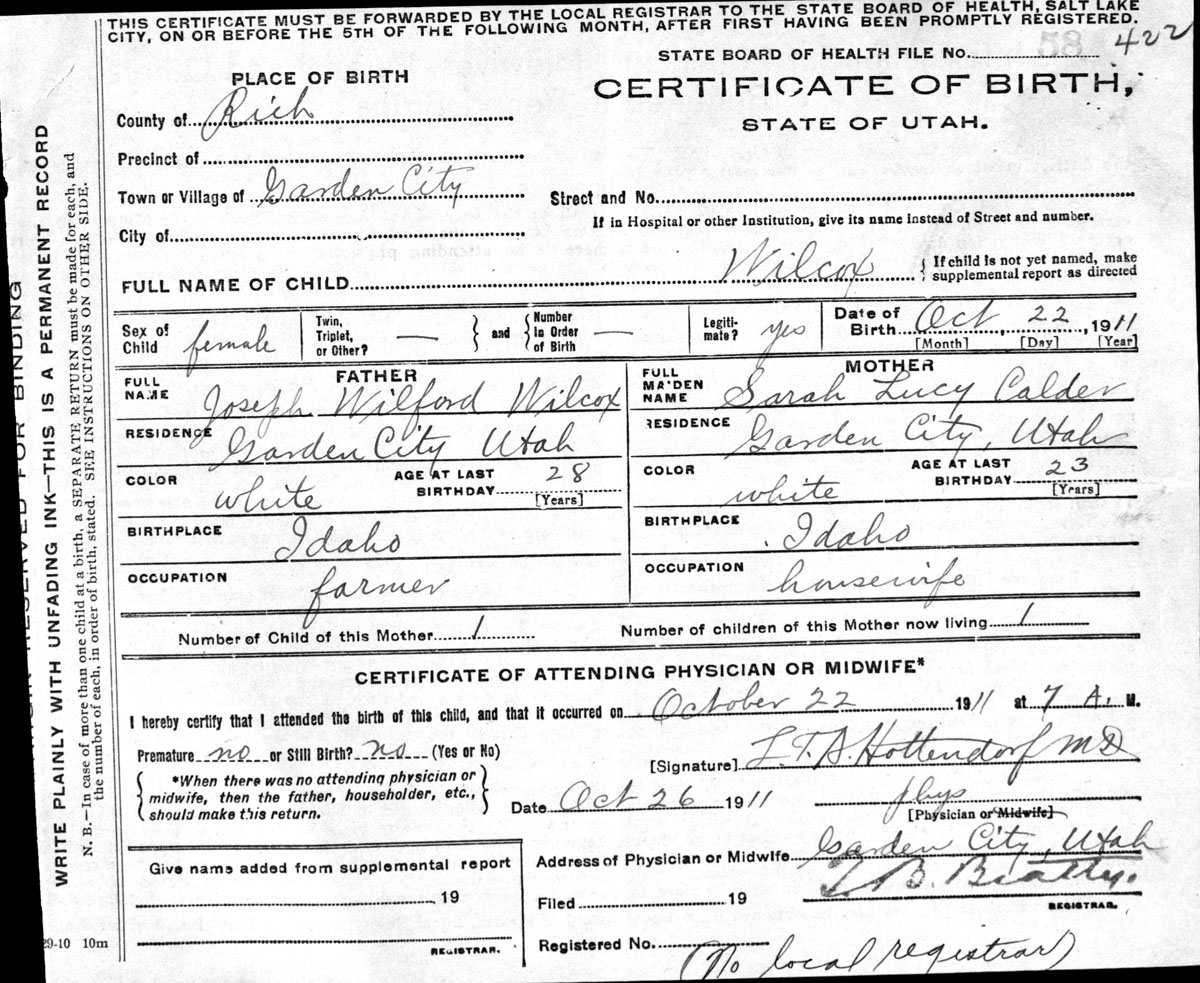 THIS CERTIFICATE MUST BE FORWARDED BY THE LOCAL REGISTRAR TO THE STATE BOARD OF HEALTH, SALT LAKE
CITY, ON OR BEFORE THE 5TH OF THE FOLLOWING MONTH, AFTER FIRST HAVING BEEN PROMPTLY REGISTERED.
58 422
STATE BOARD OF HEALTH FILE No.
PLACE OF BIRTH
CERTIFICATE OF BIRTH,
STATE OF UTAH.
County of Rich
Precinct of
Town or Village of Garden City
Street and No.
If in Hospital or other Institution, give its name instead of Street and number.
City of
FULL NAME OF CHILD Wilcox { If child is not yet named, make
supplemental report as directed
Sex of Child female
Twin, Triplet, or Other? — } and { Number in Order of Birth —
Legiti-mate? yes
Date of Birth Oct 22, 1911
[Month] [Day] [Year]
FATHER
FULL NAME Joseph Wilford Wilcox
MOTHER
FULL MAIDEN NAME Sarah Lucy Calder
RESIDENCE Garden City Utah
RESIDENCE Garden City, Utah
COLOR white AGE AT LAST BIRTHDAY 28 [Years]
COLOR white AGE AT LAST BIRTHDAY 23 [Years]
BIRTHPLACE Idaho
BIRTHPLACE Idaho
OCCUPATION farmer
OCCUPATION housewife
Number of Child of this Mother 1
Number of children of this Mother now living 1
CERTIFICATE OF ATTENDING PHYSICIAN OR MIDWIFE*
I hereby certify that I attended the birth of this child, and that it occurred on October 22 1911 at 7 A. M.
Premature no or Still Birth? no (Yes or No)
[Signature] L.T.A. Hottendorf MD
{ *When there was no attending physician or
midwife, then the father, householder, etc.,
should make this return. }
Date Oct 26 1911
phys
[Physician or Midwife]
Give name added from supplemental report
19
REGISTRAR.
Address of Physician or Midwife Garden City, Utah
Filed 19
T B. Beatty.
REGISTRAR.
Registered No.
(No local registrar)
29-10 10m
RESERVED FOR BINDING
WRITE PLAINLY WITH UNFADING INK—THIS IS A PERMANENT RECORD
N. B.—In case of more than one child at a birth, a SEPARATE RETURN must be made for each, and
the number of each, in order of birth, stated. SEE INSTRUCTIONS ON OTHER SIDE.